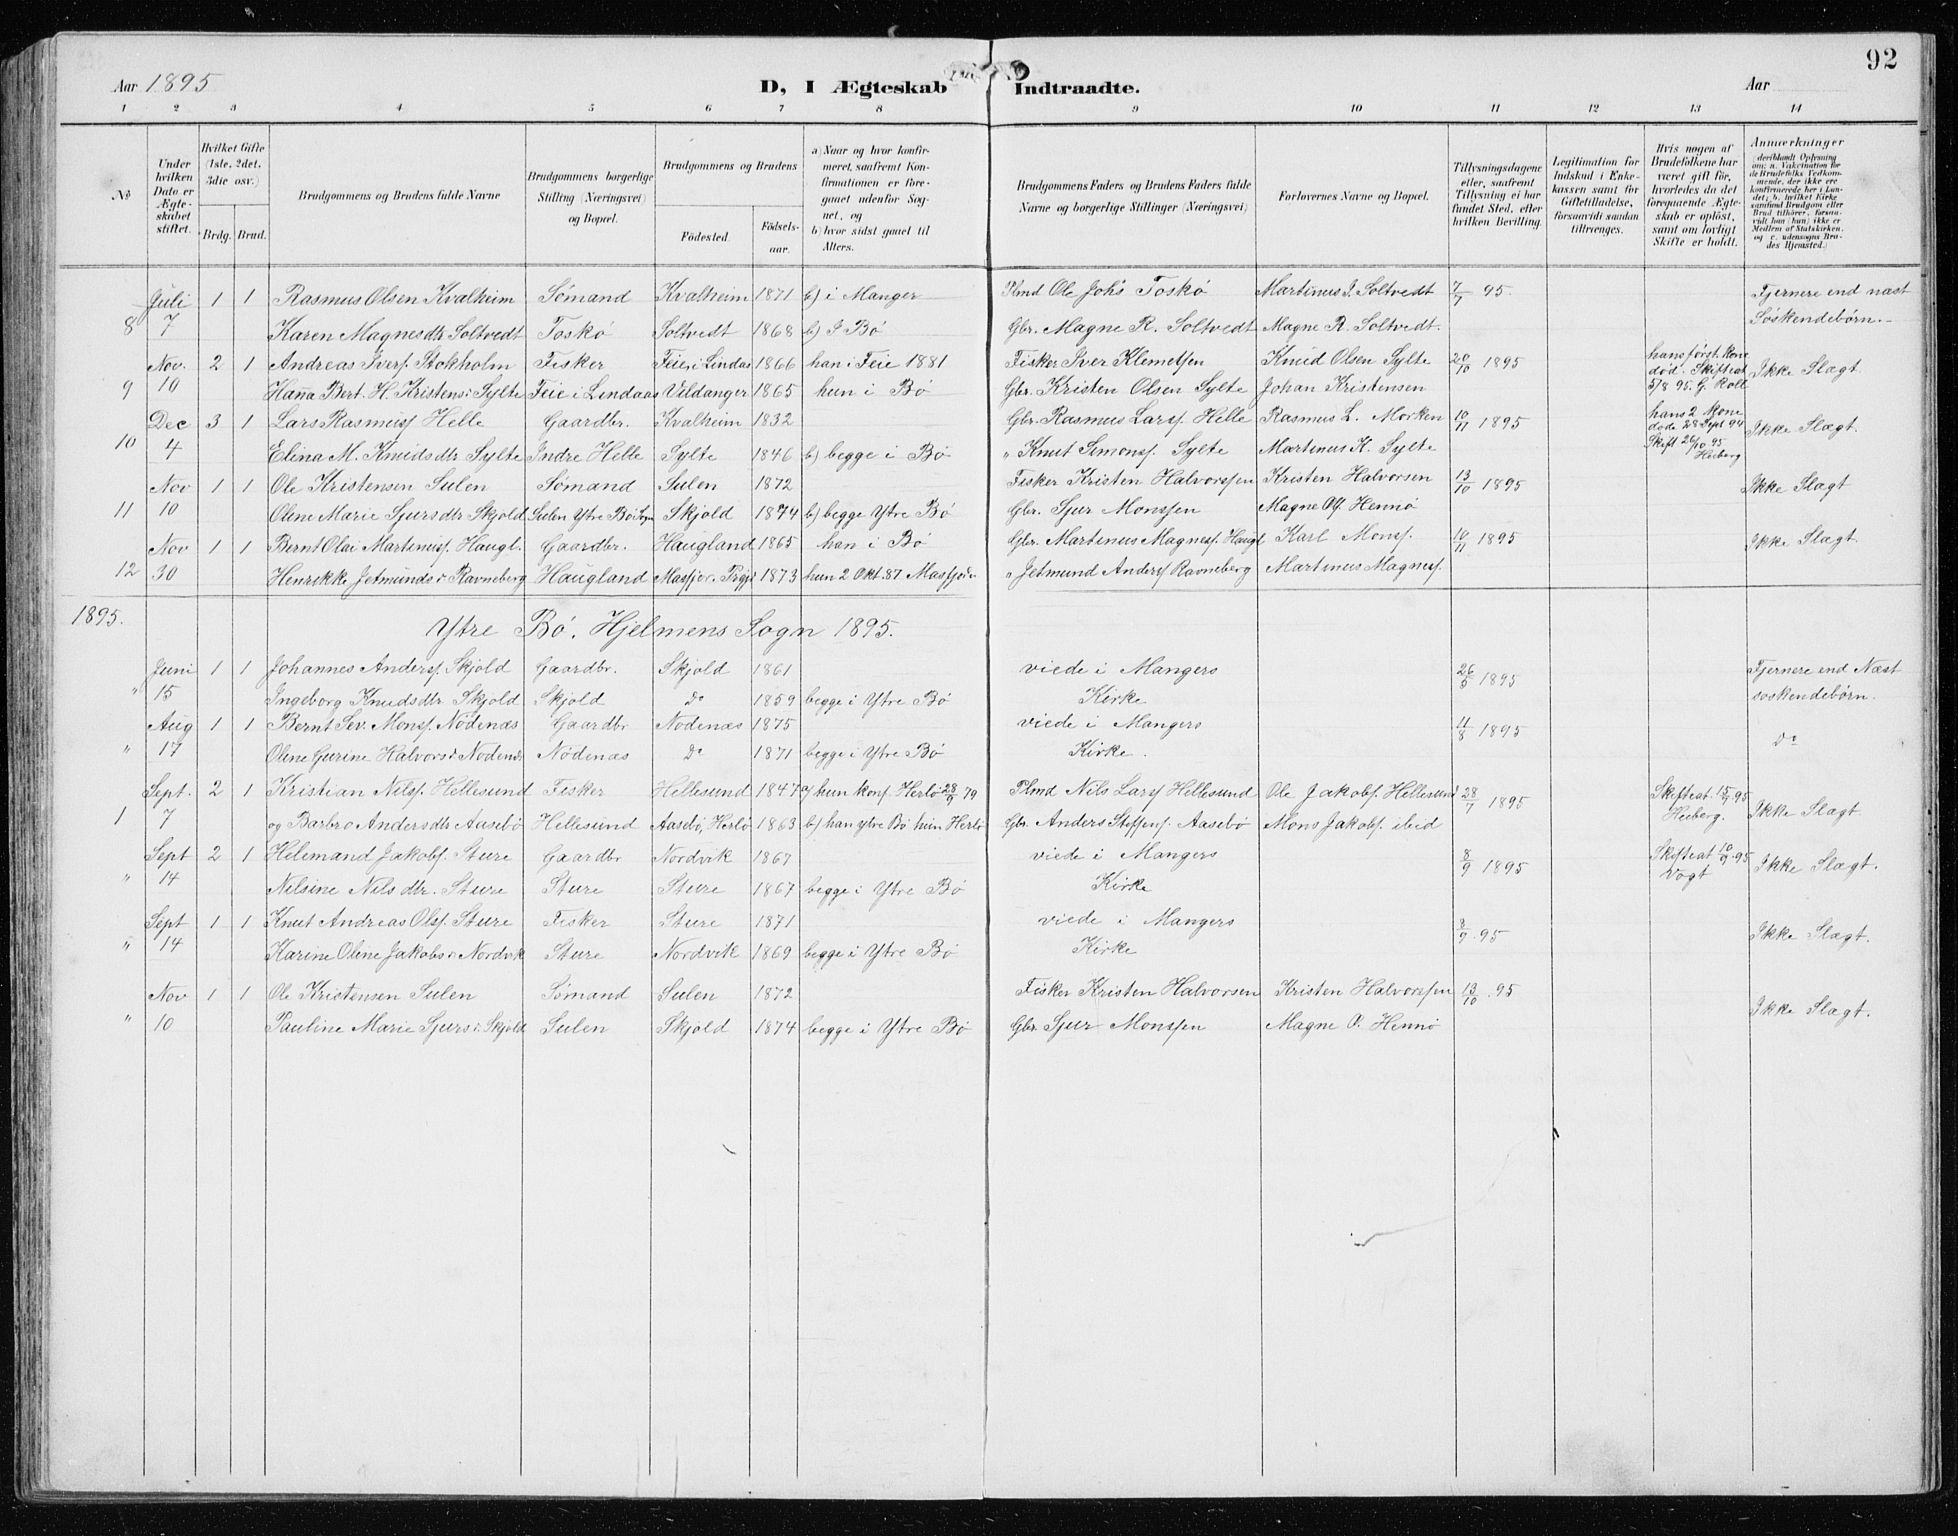 92
Aar 1895 D, I Ægteskab Indtraadte. Aar
1 2 3 4 5 6 7 8 9 10 11 12 13 14
No
Under hvilken Dato er Ægteskabet stiftet.
Hvilket Gifte (1ste, 2det, 3die osv.) Brdg. Brud.
Brudgommens og Brudens fulde Navne
Brudgommens borgerlige Stilling (Næringsvei) og Bopæl.
Brudgommens og Brudens Fødested. Fødselsaar.
a) Naar og hvor konfirmeret, saafremt Konfirmationen er foregaaet udenfor Sognet, og b) hvor sidst gaaet til Alters.
Brudgommens Faders og Brudens Faders fulde Navne og borgerlige Stillinger (Næringsvei)
Forlovernes Navne og Bopæl.
Tillysningsdagene eller, saafremt Tillysning ei har fundet Sted, efter hvilken Bevilling.
Legitimation for Indskud i Enkekassen samt for Giftetilladelse, forsaavidt saadan tiltrænges.
Hvis nogen af Brudefolkene har været gift før, hvorledes da det foregaaende Ægteskab er opløst, samt om lovligt Skifte er holdt.
Anmærkninger (deriblandt Oplysning om: a. Vakcination for de Brudefolks Vedkommende, der ikke ere konfirmerede her i Landet; b. hvilket Kirkesamfund Brudgom eller Brud tilhører, forsaavidt han (hun) ikke er Medlem af Statskirken, og c. udensogns Brudes Hjemsted.)
Juli 1 1 Rasmus Olsen Kvalheim Sømand Kvalheim 1871 b) i Manger Plmd Ole Johs Toskø Martinus J. Soltvedt 7/7 95. Fjernere end næst
8 7 Karen Magnesdtr Soltvedt Toskø Soltvedt 1868 b) I Bø Gbr. Magne R. Soltvedt Magne R. Soltvedt. Søskendebørn.
Nov. 2 1 Andreas Iversf. Stokholm Fisker Feie i Lindaas 1866 han i Feie 1881 Fisker Iver Klemetsen Knud Olsen Sylte 20/10 1895 hans først. Kone død. Skifteat. Ikke Slægt.
9 10 Hanna Bert. H. Kristens. Sylte Feie i Lindaas Vildanger 1865 hun i Bø Gbr. Kristen Olsen Sylte Johan Kristensen 5/8 95. G. Roll
Dec 3 1 Lars Rasmusf Helle Gaardbr. Kvalheim 1832 Gbr. Rasmus Larsf. Helle Rasmus L. Morken 10/11 1895 hans 2 Kone døde 28 Sept 94 Ikke Slægt.
10 4 Elina M. Knudsdtr Sylte Indre Helle Sylte 1846 b) begge i Bø " Knut Simonsf. Sylte Martinus K. Sylte Skift 26/10 95 Heiberg
Nov 1 1 Ole Kristensen Sulen Sømand Sulen 1872 Fisker Kristen Halvorssen Kristen Halvorsen 13/10 1895 Ikke Slægt
11 10 Oline Marie Sjursdtr Skjold Sulen Ytre Bø Sogn Skjold 1874 b) begge Ytre Bø Gbr. Sjur Monssen Magne Olf Hennø
Nov 1 1 Bernt Olai Martinusf. Haugl. Gaardbr. Haugland 1865 han i Bø Gbr. Martinus Magnesf. Haugl Karl Monsf. 10/11 1895 Ikke Slægt.
12 30 Henrikke Jetmundsdr Ravneberg Haugland Masfjor. Prgjd 1873 hun 2 Okt. 87 Masfjord " Jetmund Andersf Ravneberg Martinus Magnesf.
1895. Ytre Bø. Hjelmens Sogn 1895.
Juni 1 1 Johannes Andersf. Skjold Gaardbr. Skjold 1861 viede i Mangers 26/5 1895 Fjernere end Næst
" 15 Ingeborg Knudsdtr Skjold Skjold do 1859 begge i Ytre Bø Kirke søskendebørn.
Aug 1 1 Bernt Sev. Monsf. Nødenæs Gaardbr Nødenæs 1875 viede i Mangers 4/8 1895
" 17 Oline Gurine Halvorsdr Nødenæs Nødenæs do 1871 begge i Ytre Bø Kirke. do
Sept. 2 1 Kristian Nilsf. Hellesund Fisker Hellesund 1847 a) hun konf. Herlø 28/9 79 Plmd Nils Larsf Hellesund Ole Jakobsf. Hellesund 28/7 1895 Skifteat. 15/7 95 Heiberg. Ikke Slægt.
1 7 og Barbro Andersdtr Aasebø Hellesund Aasebø, Herlø 1863 b) han ytre Bø hun Herlø Gbr. Anders Steffensf. Aasebø Mons Jakobsf. ibid
Sept 2 1 Helemand Jakobsf. Sture Gaardbr Nordvik 1867 viede i Mangers 8/9 1895 Skifteat 10/9 95 Vogt Ikke Slægt.
" 14 Nilsine Nilsdtr. Sture Sture Sture 1867 begge i Ytre Bø Kirke
Sept 1 1 Knut Andreas Olsf. Sture Fisker Sture 1871 viede i Mangers 8/9 95 Ikke Slægt.
" 14 Karine Oline Jakobsdr Nordvik Sture Nordvik 1869 begge i Ytre Bø Kirke
Nov 1 1 Ole Kristensen Sulen Sømand Sulen 1872 Fisker Kristen Halvorsen Kristen Halvorssen 13/10 95 Ikke Slægt.
" 10 Pauline Marie Sjursdr. Skjold Sulen Skjold 1874 begge i Ytre Bø Gbr Sjur Monssen Magne O. Hennø